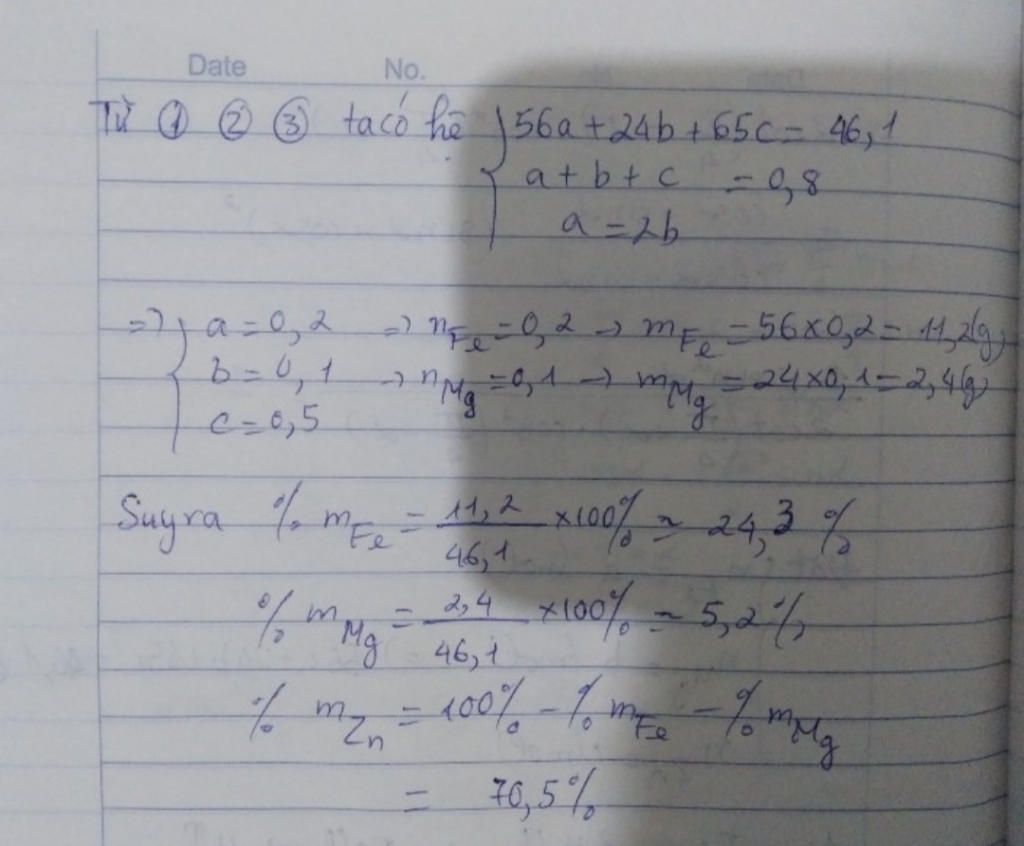 Date No.
Từ ① ② ③ ta có hệ { 56a + 24b + 65c = 46,1
a + b + c = 0,8
a = 2b
=> { a = 0,2 => nFe = 0,2 -> mFe = 56x0,2 = 11,2(g)
b = 0,1 -> nMg = 0,1 -> mMg = 24x0,1 = 2,4(g)
c = 0,5
Suy ra % mFe = 11,2/46,1 x100% ≈ 24,3 %
% mMg = 2,4/46,1 x100% ≈ 5,2%
% mZn = 100% - % mFe - % mMg
= 70,5%